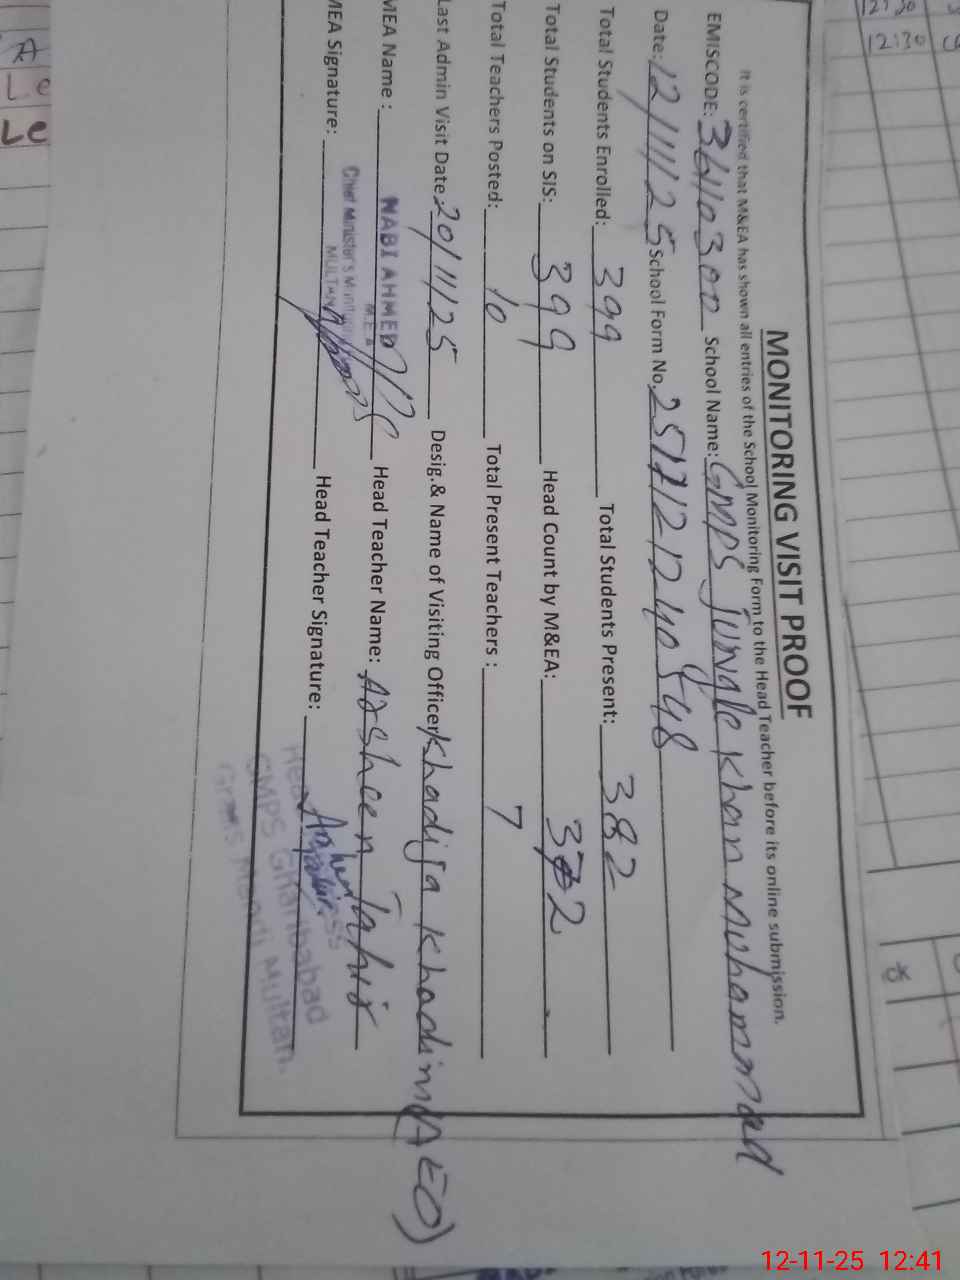 MONITORING VISIT PROOF
It is certified that M&EA has shown all entries of the School Monitoring Form to the Head Teacher before its online submission.
EMISCODE: 36110300 School Name: GMPS Jungle Khan Muhammad
Date: 12/11/25 School Form No. 2512121240548
Total Students Enrolled: 399 Total Students Present: 382
Total Students on SIS: 399 Head Count by M&EA: 372
Total Teachers Posted: 10 Total Present Teachers : 7
Last Admin Visit Date 20/11/25 Desig.& Name of Visiting Officer Khadija Khadim (AEO)
MEA Name : NABI AHMED Head Teacher Name: Afsheen Tahir
M.E.A
Chief Minister's Monitoring
MULTAN
MEA Signature: Head Teacher Signature:
GMPS Gharibabad
Multan.
12:30
12:30
A
Le
Le
12-11-25 12:41